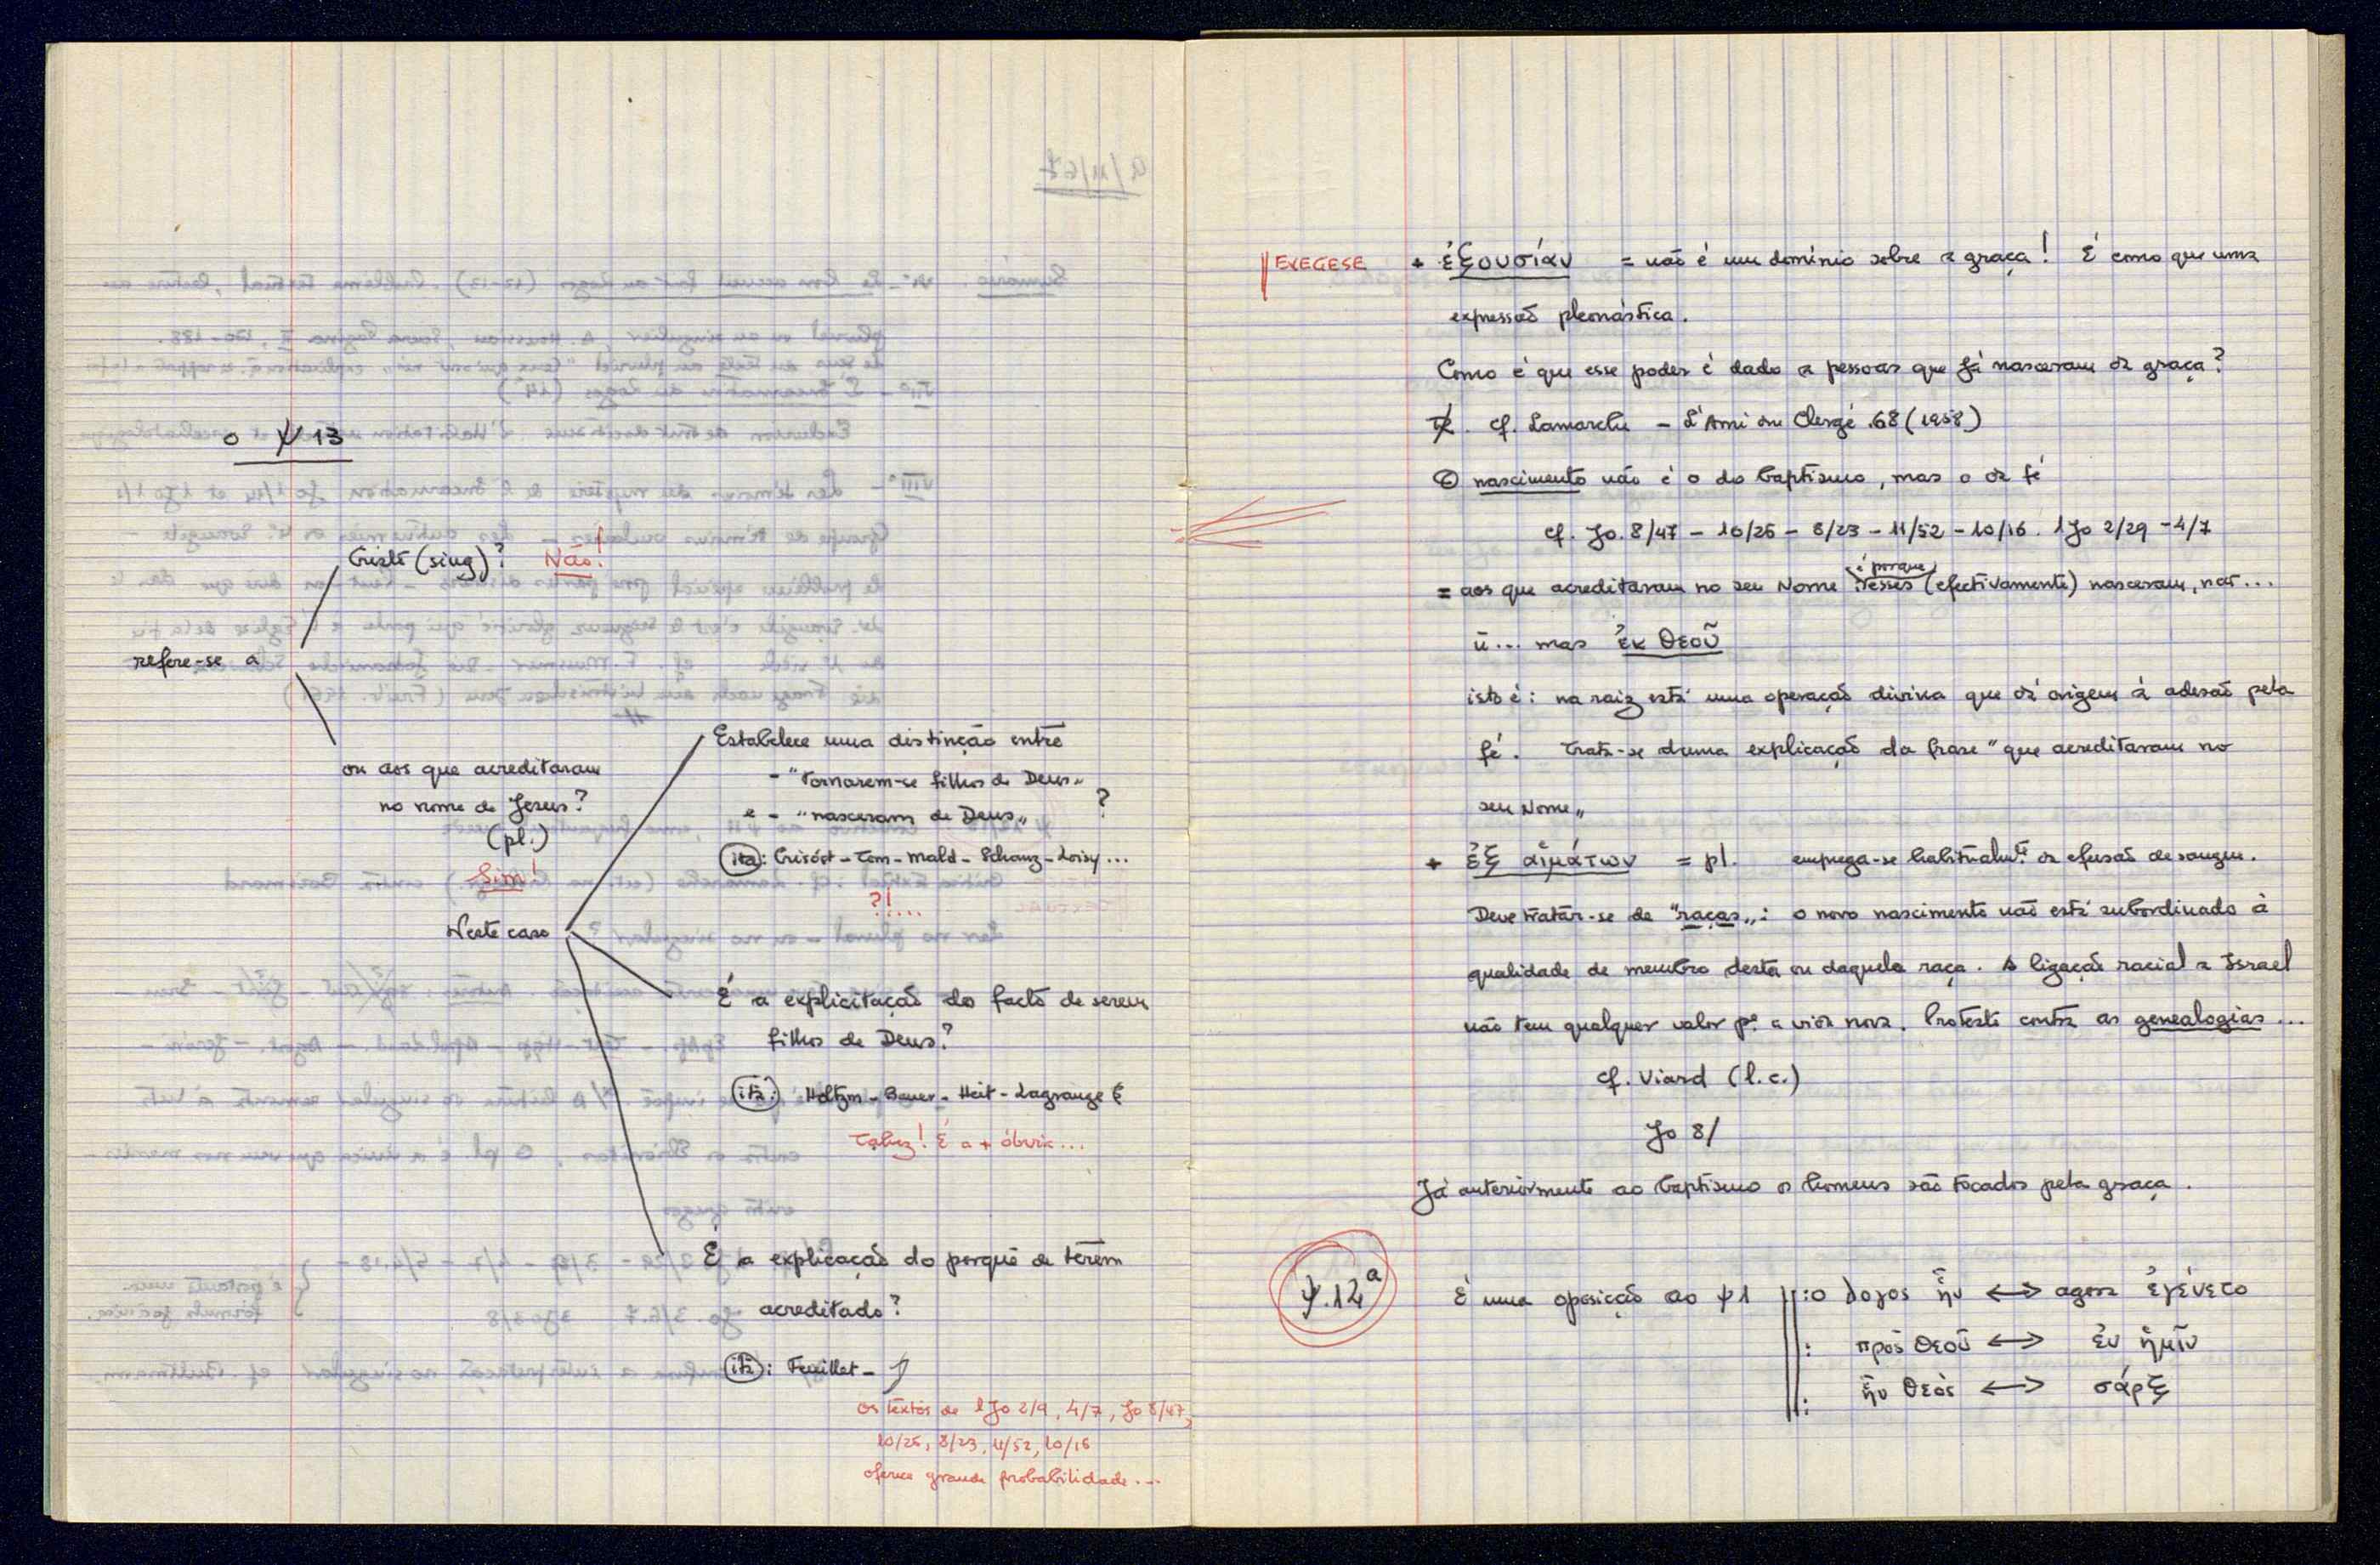 o ℣ 13
Cristo (sing)? Não!
refere-se a
ou aos que acreditaram
no nome de Jesus?
(pl.)
Sim!
Neste caso
Estabelece uma distinção entre
- "tornarem-se filhos de Deus„
e - "nasceram de Deus„ ?
(ita): Crisóst - Tom - Mald - Schanz - Loisy ...
?!...
É a explicitação do facto de serem
filhos de Deus?
(ita): Holtzm - Bauer - Heit - Lagrange
Talvez! É a + óbvia...
É a explicação do porquê de terem
acreditado?
(ita): Feuillet -
os textos de 1 Jo 2/9, 4/7, Jo 8/47,
10/26, 8/23, 11/52, 10/16
oferece grande probabilidade...
EXEGESE + ἐξουσίαν = não é um domínio sobre a graça! É como que uma
expressão pleonástica.
Como é que esse poder é dado a pessoas que já nasceram da graça?
R. cf. Lamarche - L'Ami du Clergé .68 (1958)
O nascimento não é o do baptismo, mas o da fé
cf. Jo. 8/47 - 10/26 - 8/23 - 11/52 - 10/16. 1 Jo 2/29 - 4/7
é porque
= aos que acreditaram no seu Nome esses (efectivamente) nasceram, não...
ñ... mas ἐκ Θεοῦ
isto é: na raiz está uma operação divina que dá origem à adesão pela
fé. Trata-se duma explicação da frase "que acreditaram no
seu Nome„
+ ἐξ αἱμάτων = pl. emprega-se habitualmte da efusão de sangue.
Deve tratar-se de "raças„: o novo nascimento não está subordinado à
qualidade de membro desta ou daquela raça. A ligação racial a Israel
não tem qualquer valor pª a vida nova. Protesto contra as genealogias...
cf. Viard (l.c.)
Jo 8/
Já anteriormente ao baptismo os homens são tocados pela graça.
℣.14a É uma oposição ao ℣ 1 : o Logos ἦν ⟷ agora ἐγένετο
: πρὸς Θεοῦ ⟷ ἐν ἡμῖν
: ἦν Θεὸς ⟷ σάρξ